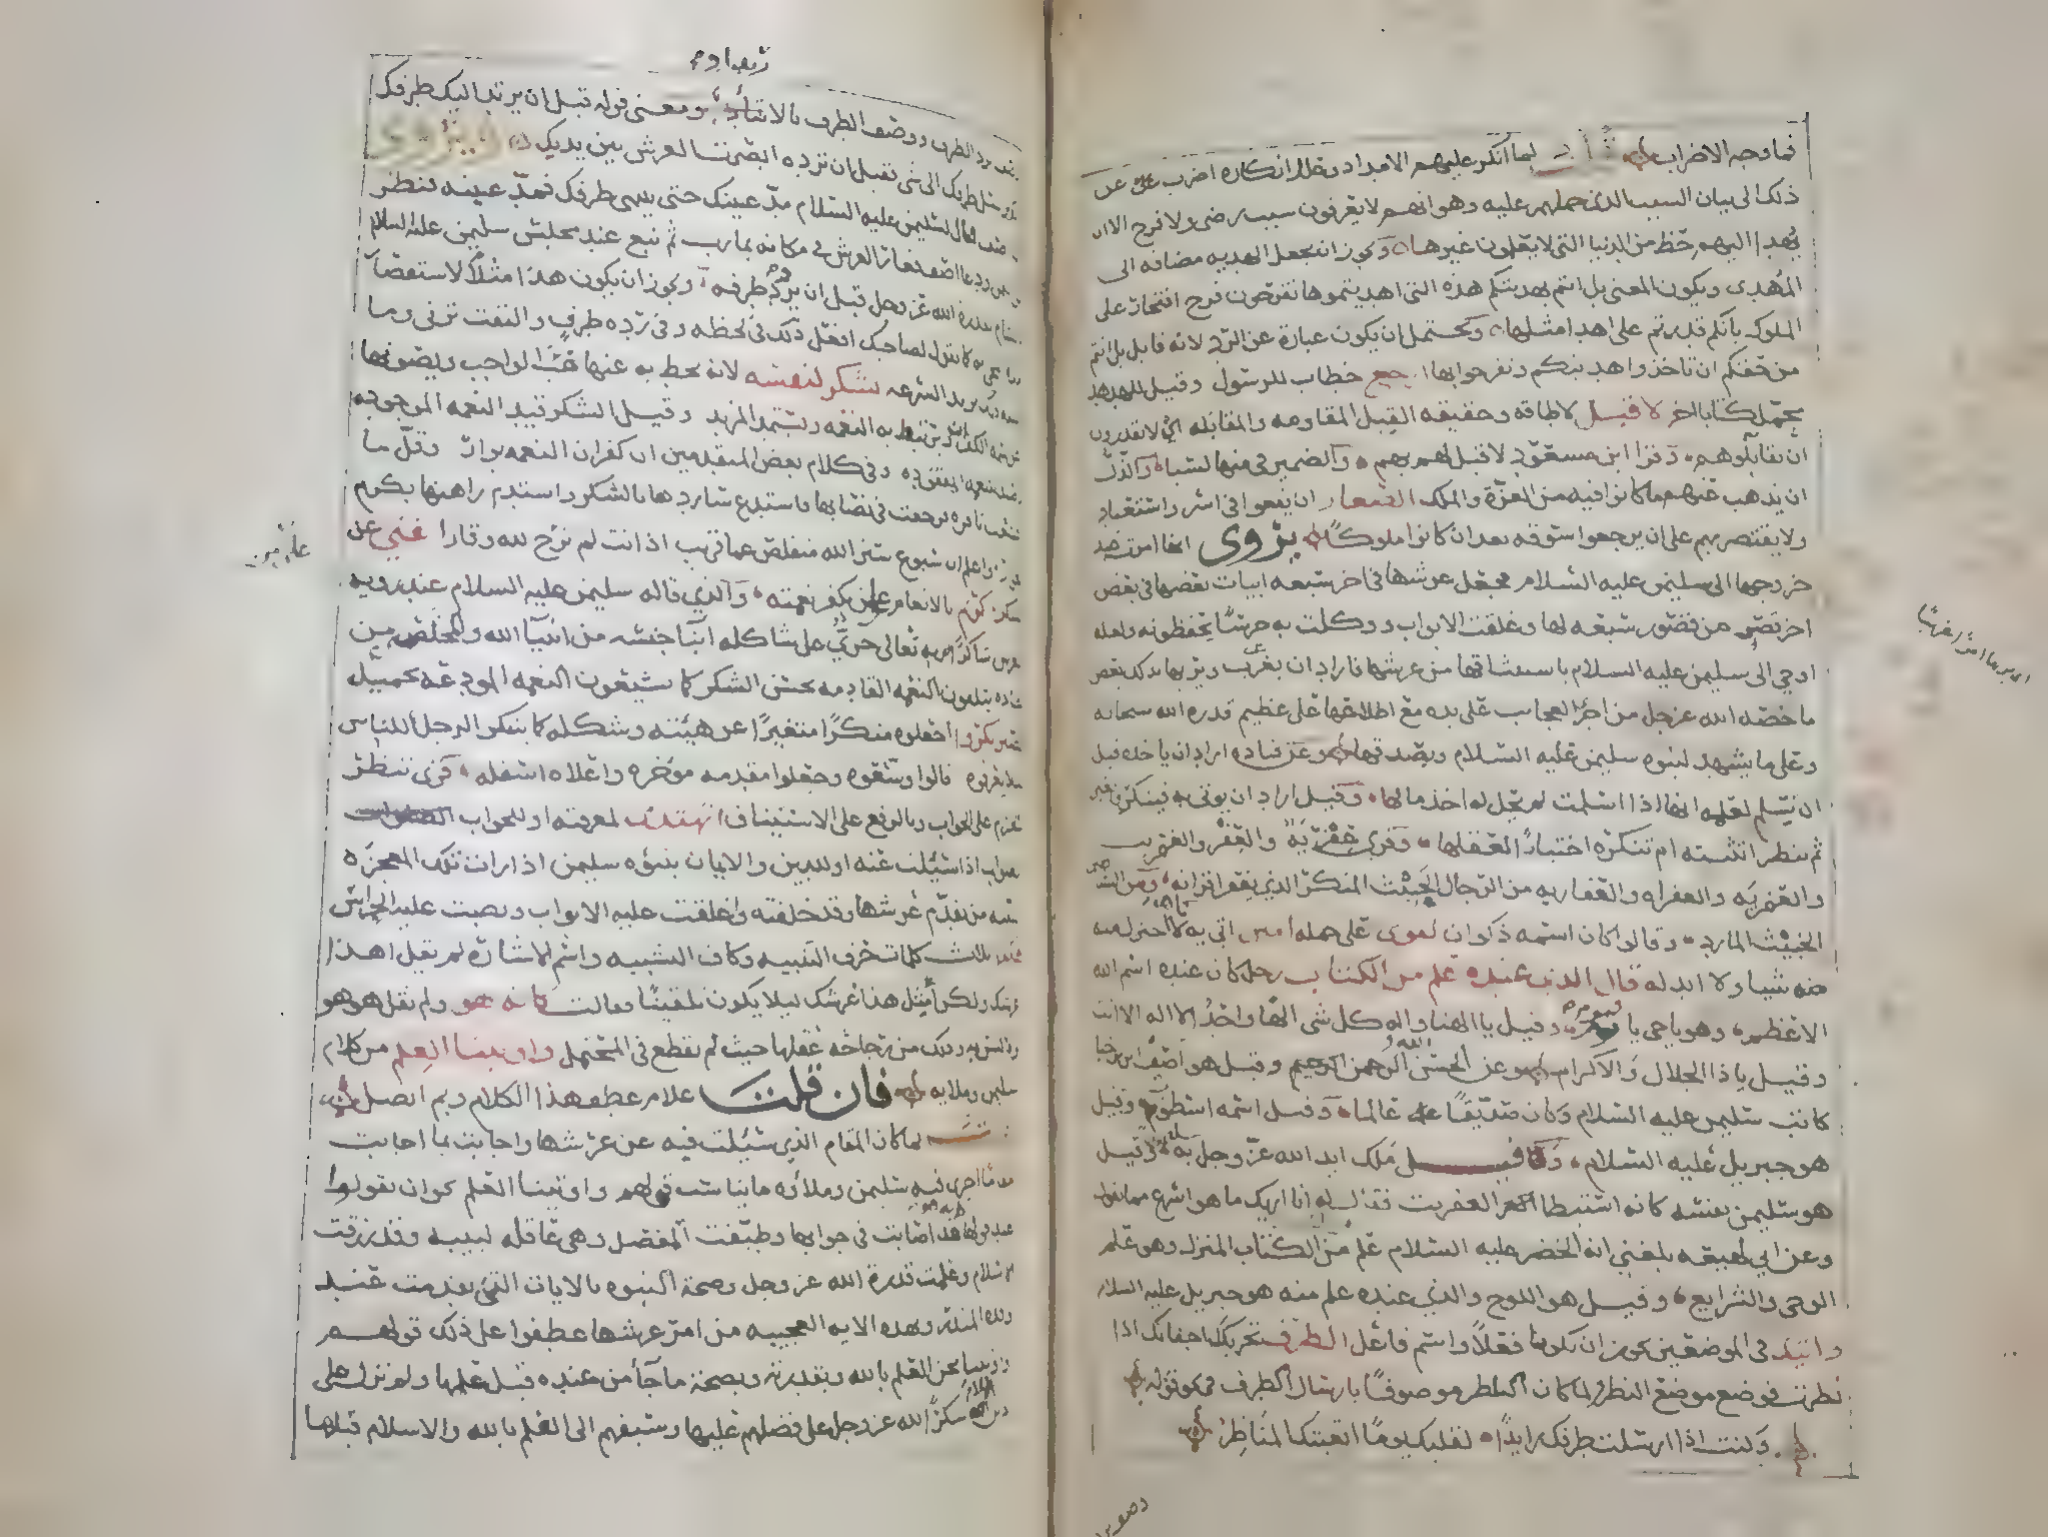 فما وجه الاضراب قلت لما انكر عليهم الامداد وعلل انكاره اضرب عن
ذلك الى بيان السبب الذي حملهم عليه وهو انهم لا يعرفون سبب رضى ولا فرح الا ان
يهدا اليهم حظ من الدنيا التي لا يعلمون غيرها ويجوز ان يجعل الهديه مضافه الى
المهدى ويكون المعنى بل انتم بهديتكم هذه التي اهديتموها تفرحون فرح افتخار على
الملوك بانكم قدرتم على اهدا مثلها ويحتمل ان يكون عبارة عن الرد لانه قال بل انتم
من حقكم ان تاخذوا هديتكم وتفرحوا بها ارجع خطاب للرسول وقيل للهدهد
محمل كتابا اخر لا قبل لا طاقه وحقيقه القبل المقاومه والمقابله اي لا يقدرون
ان يقابلوهم وقرا ابن مسعود لا قبل لهم بهم والضمير في منها لسبا والذل
ان يذهب عنهم ما كانوا فيه من العزة والملك الصغار ان يقعوا في اسر واستعباد
ولا يقتصر بهم على ان يرجعوا سوقه بعد ان كانوا ملوكا يروى انها امرت عند
خروجها الى سليمن عليه السلام فجعل عرشها في اخر سبعه ابيات بعضها في بعض
اخر قصر من قصور سبعه لها وغلقت الابواب ووكلت به حرسا يحفظونه ولعله
اوحي الى سليمن عليه السلام باستيثاقها من عرشها فاراد ان يغرب ويريها بذلك بعض
ما خصه الله عز وجل من اجرا العجائب على يده مع اطلاعها على عظيم قدره الله سبحانه
وعلى ما يشهد لنبوه سليمن عليه السلام ويصدقها وعن قتاده اراد ان ياخذه قبل
ان تسلم لعلمه انها اذا اسلمت لم يحل له اخذ مالها وقيل اراد ان يوتى به فينكر ويغير
ثم ينظر اتثبته ام تنكره اختبارا لعقلها وقرى عفرية والعفر والعفريت
والعفريه والعفراه والعفاريه من الرجال الخبيث المنكر الذي يعفر اقرانه ومن الشياطين
الخبيث المارد وقالوا كان اسمه ذكوان لقوى على حمله امين اتي به كما هو لا اختزل منه
شيا ولا ابدله قال الذي عنده علم من الكتاب رجل كان عنده اسم الله
الاعظم وهو يا حي يا قيوم وقيل يا الهنا واله كل شي الها واحدا لا اله الا انت
وقيل يا ذا الجلال والاكرام وعن الحسن الله الرحمن الرحيم وقيل هو اصف ابن برخيا
كاتب سليمن عليه السلام وكان صديقا عالما وقيل اسمه اسطوم وقيل
هو جبريل عليه السلام وقيل ملك ايد الله عز وجل به سليمن وقيل
هو سليمن نفسه كانه استبطا العفريت فقال له انا اريك ما هو اسرع مما تقول
وعن ابي لهيعه بلغني انه الخضر عليه السلام علم من الكتاب المنزل وهو علم
الوحي والشرايع وقيل هو اللوح والذي عنده علم منه هو جبريل عليه السلام
واتيك في الموضعين يجوز ان يكون فعلا واسم فاعل الطرف تحريكك اجفانك اذا
نظرت فوضع موضع النظر ولما كان الناظر موصوفا بارسال الطرف في نحو قوله
وكنت اذا ارسلت طرفك رايدا لقلبك يوما اتعبتك المناظر
وصف برد الطرف ووصف الطرف بالارتداد ومعنى قوله قبل ان يرتد اليك طرفك
انك ترسل طرفك الى شي فقبل ان ترده ابصرت العرش بين يديك ويروى
ان اصف قال لسليمن عليه السلام مد عينك حتى ينتهي طرفك فمد عينيه فنظر
نحو اليمن ودعا اصف فغار العرش في مكانه بمارب ثم نبع عند مجلس سليمن عليه السلام
بالشام بقدرة الله عز وجل قبل ان يرد طرفه ويجوز ان يكون هذا مثلا لاستقصار
مدة مجي به كما تقول لصاحبك افعل ذلك في لحظه وفي ردة طرف والتفت ترني وما
اشبه ذلك يريد السرعه يشكر لنفسه لانه يحط به عنها عبء الواجب ويصونها
عن سمه الكفران وترتبط به النعمه ويستمد المزيد وقيل الشكر قيد النعمه الموجوده
وصيد النعمه المفقوده وفي كلام بعض المتقدمين ان كفران النعمه بوار وقل ما
اقشعت نافره فرجعت في نصابها فاستدع شاردها بالشكر واستدم راهنها بكرم
الجوار واعلم ان سبوغ ستر الله متقلص عما قريب اذا انت لم ترج لله وقارا غني عن
الشكر كريم بالانعام على من يكفر نعمته والذي قاله سليمن عليه السلام عند رؤيه
العرش شاكرا لربه تعالى جري على شاكله ابنا جنسه من انبيا الله والمخلصين من
عباده يتلقون النعمه القادمه بحسن الشكر كما يشيعون النعمه المودعه بجميل
الصبر نكروا اجعلوه منكرا متغيرا عن هيئته وشكله كما يتنكر الرجل للناس
ليلا يعرفوه قالوا وسعوه وجعلوا مقدمه موخره واعلاه اسفله وقرى ننظر
بالجزم على الجواب وبالرفع على الاستيناف اتهتدي لمعرفته او للجواب
الصواب اذا سئلت عنه او للدين والايمان بنبوه سليمن اذا رات تلك المعجزه
البينه من تقدم عرشها وقد خلفته واغلقت عليه الابواب ونصبت عليه الحراس
هكذا ثلاث كلمات حرف التنبيه وكاف التشبيه واسم الاشاره لم يقل اهذا
عرشك ولكن امثل هذا عرشك ليلا يكون تلقينا فقالت كانه هو ولم تقل هو هو
ولا ليس به وذلك من رجاحه عقلها حيث لم تقطع في المحتمل واوتينا العلم من كلام
سليمن وملايه فان قلت علام عطف هذا الكلام وبم اتصل
قلت لما كان المقام الذي سئلت فيه عن عرشها واجابت بما اجابت
مقاما اجرى فيه سليمن وملاوه ما يناسب قولهم واوتينا العلم نحو ان يقولوا
عند قولها كانه هو قد اصابت في جوابها وطبقت المفصل وهي عاقله لبيبه وقد رزقت
الاسلام وعلمت قدرة الله عز وجل وصحة النبوه بالايات التي تقدمت عند
وفده المنذر وبهذه الايه العجيبه من امر عرشها عطفوا على ذلك قولهم
واوتينا نحن العلم بالله وبقدرته وبصحة ما جا من عنده قبل علمها ولم نزل على
دين الاسلام شكرا لله عز وجل على فضلهم عليها وسبقهم الى العلم بالله والاسلام قبلها